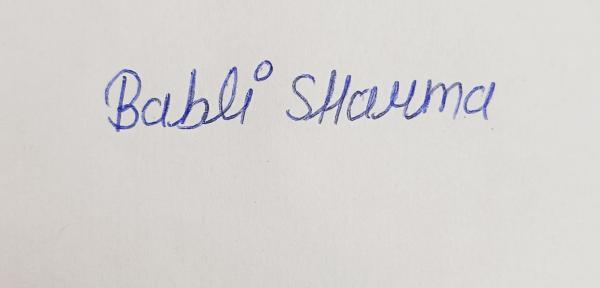 Babli Sharma